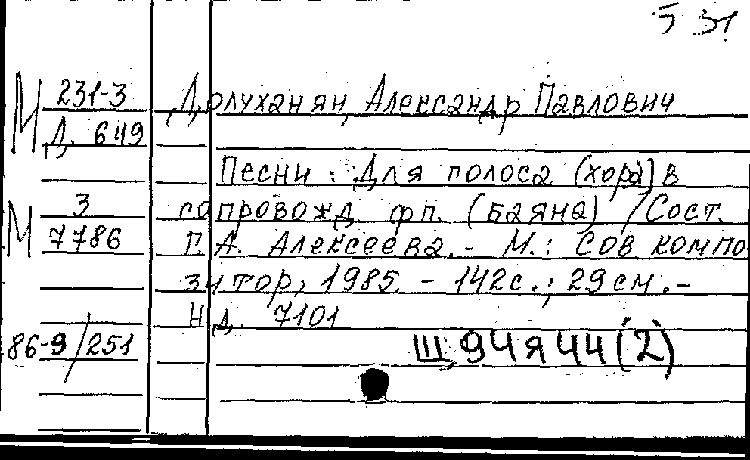 5 31
М 231-3
Д. 649
Долуханян, Александр Павлович
Песни : Для голоса (хора) в
сопровожд. фп. (баяна) / Сост.
Г. А. Алексеева. - М. : Сов компо
зитор, 1985. - 142с. ; 29см. -
Н.д. 7101
М 3
7786
86-9/251
Щ94я44(2)